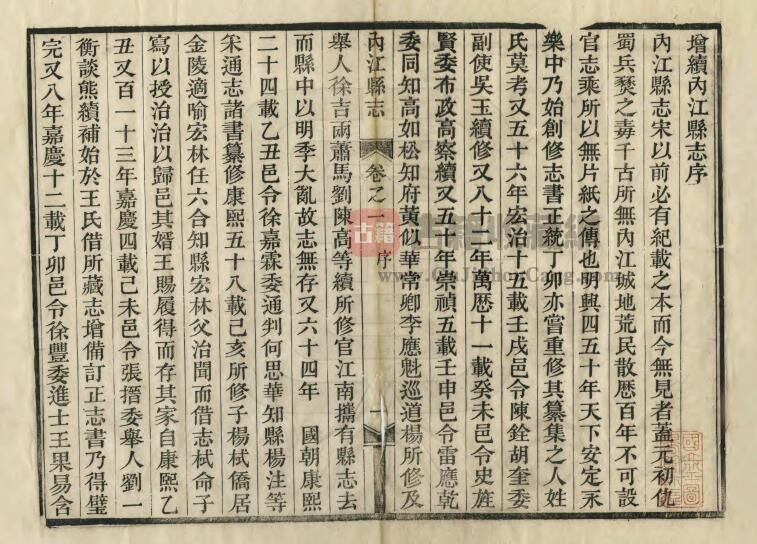 增續內江縣志序
內江縣志宋以前必有紀載之本而今無見者蓋元初仇
蜀兵燹之毒千古所無內江城地荒民散歷百年不可設
官志乘所以無片紙之傳也明興四五十年天下安定永
樂中乃始創修志書正統丁卯亦嘗重修其纂集之人姓
氏莫考又五十六年宏治十五載壬戌邑令陳銓胡奎委
副使吳玉續修又八十二年萬歷十一載癸未邑令史旌
賢委布政高察續又五十年崇禎五載壬申邑令雷應乾
委同知高如松知府黃似華常卿李應魁巡道楊所修及
內江縣志 卷之一 序 一
舉人徐吉兩蕭馬劉陳高等續所修官江南攜有縣志去
而縣中以明季大亂故志無存又六十四年 國朝康熙
二十四載乙丑邑令徐嘉霖委通判何思華知縣楊注等
采通志諸書纂修康熙五十八載己亥所修子楊栻僑居
金陵適喻宏林任六合知縣宏林父治聞而借志栻命子
寫以授治治以歸邑其婿王賜履得而存其家自康熙乙
丑又百一十三年嘉慶四載己未邑令張搢委舉人劉一
衡談熊續補始於王氏借所藏志增備訂正志書乃得璧
完又八年嘉慶十二載丁卯邑令徐豐委進士王果易含
古籍
www.GuJiShouCang.com